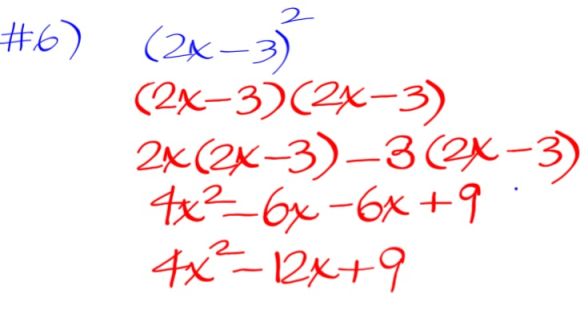 #6) (2x-3)²
(2x-3)(2x-3)
2x(2x-3)-3(2x-3)
4x²-6x-6x+9
4x²-12x+9